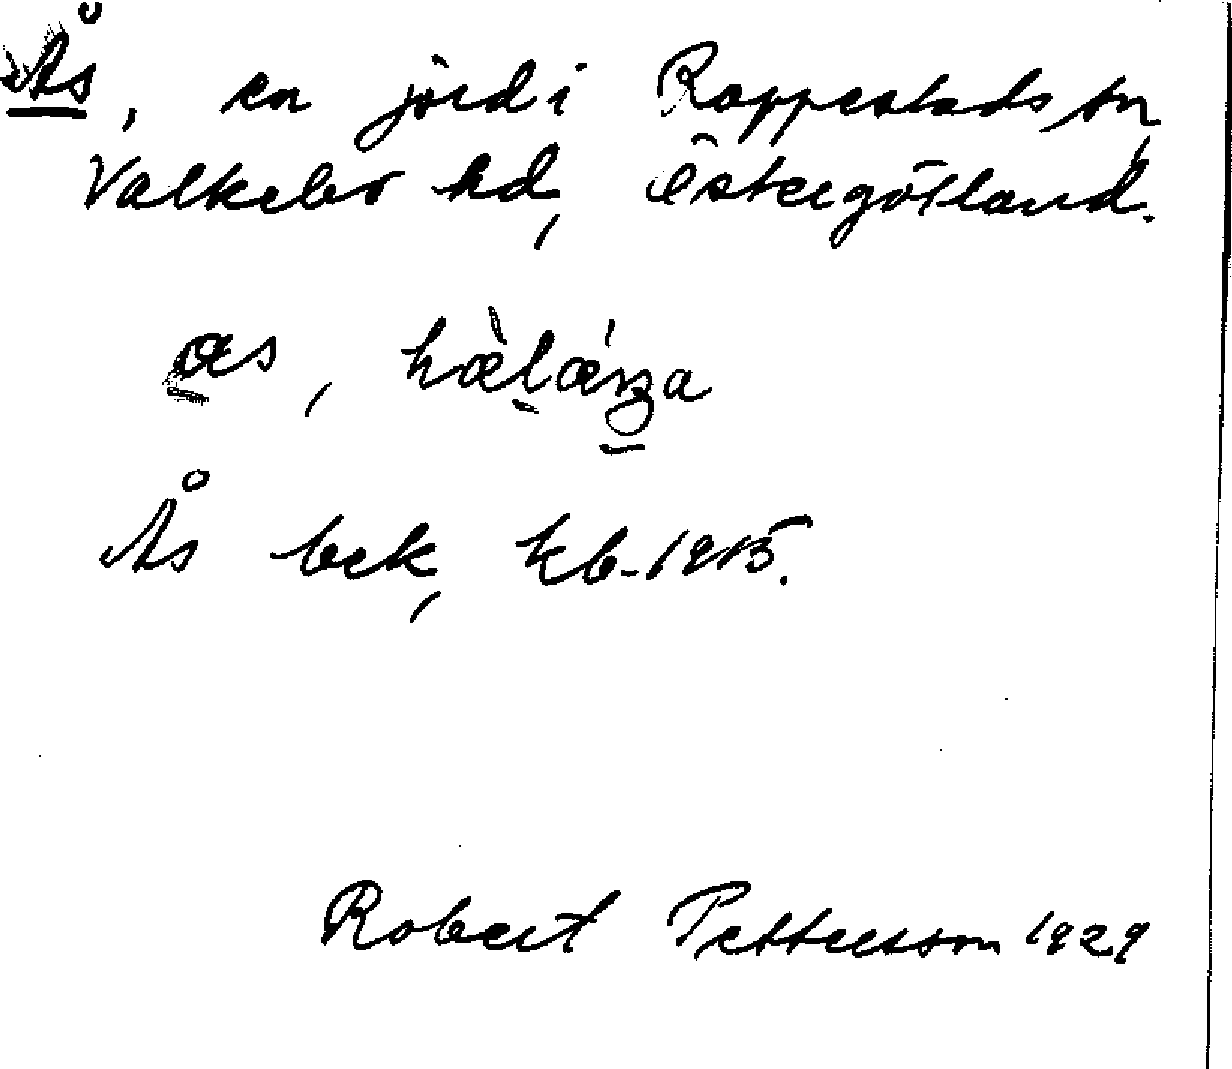 Ås, en jord i Rappestads sn,
Valkebo hd, Östergötland.
Ås bek, kb. 1915.
Robert Pettersson 1929